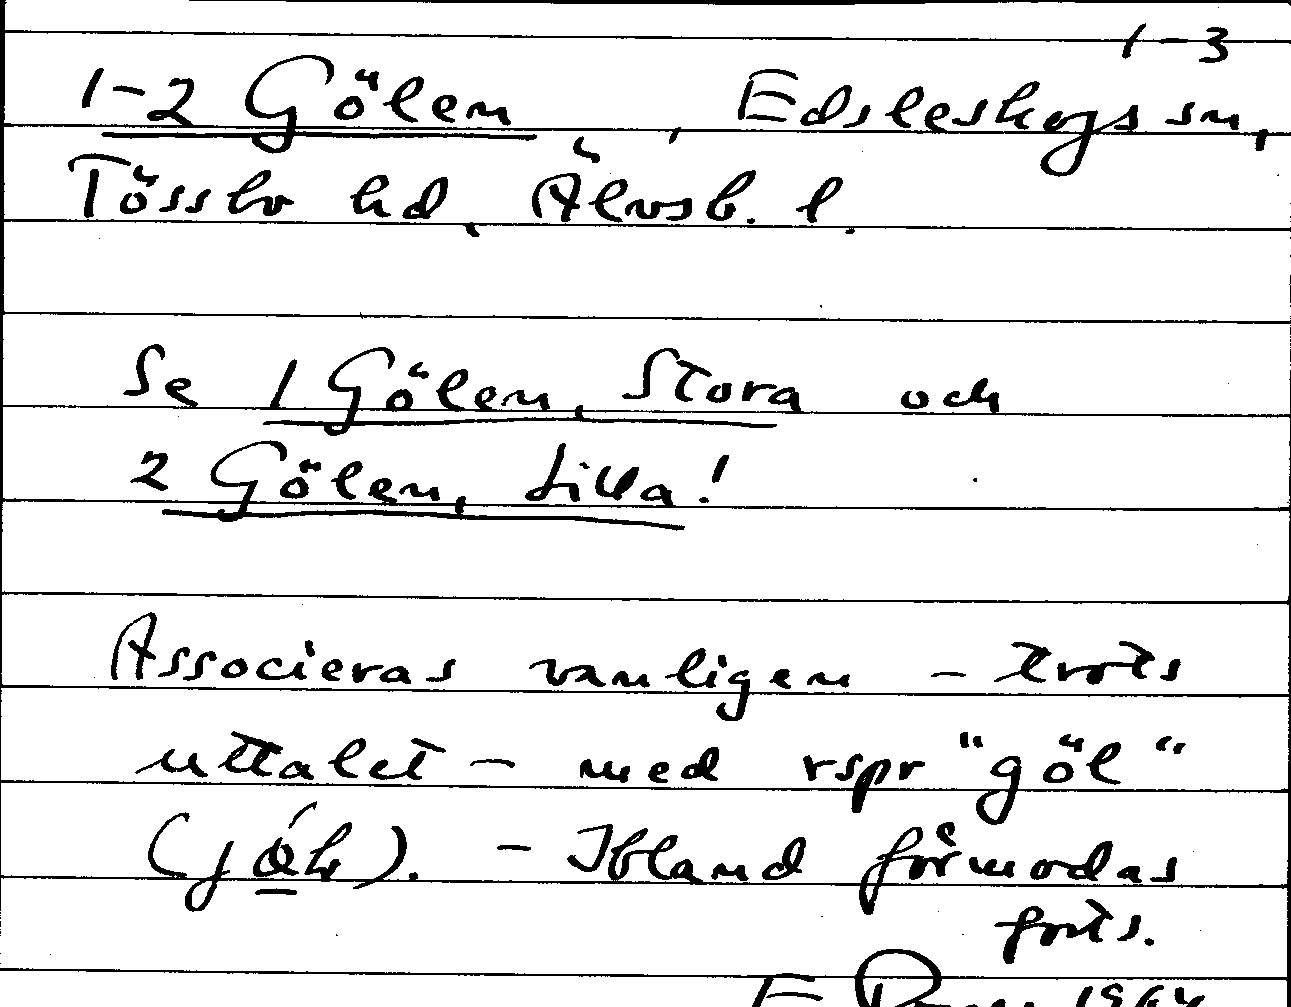 1-3
1-2 Gölen, Edsleskogs sn,
Tössbo hd, Älvsb. l.
Se 1 Gölen, Stora och
2 Gölen, Lilla!
Associeras vanligen - trots
uttalet - med rspr "göl"
- Ibland förmodas
forts.